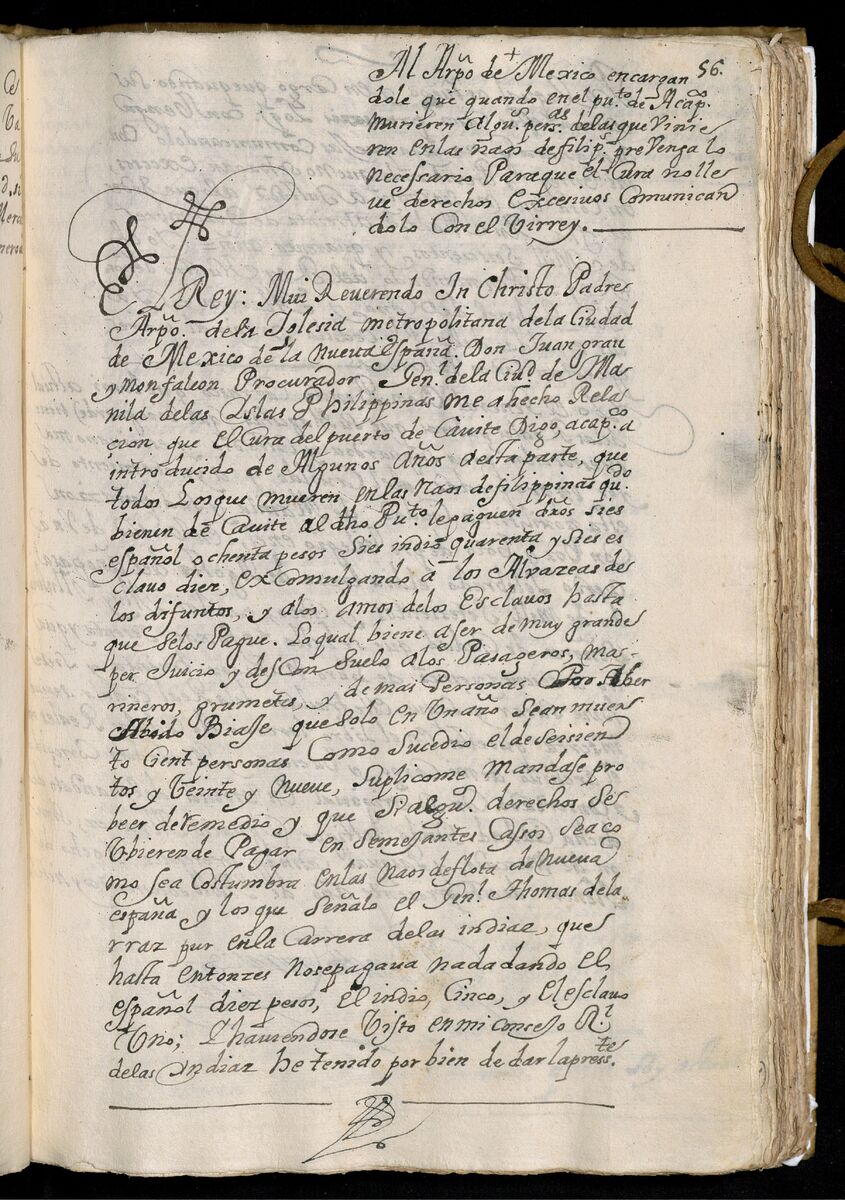 56.
Al Arp̃o de Mexico encargan
dole que quando en el pu.to de Acap.co
murieren algu.s pers.as de las que Vinie
ren en las naos de filip.s pre Venga lo
necessario Paraque el Cura no lle
ue derechos excesivos Comunican
dolo Con el Virrey.
El Rey: Mui Reuerendo In Christo Padre
Arp̃o. de la Iglesia metropolitana de la Ciudad
de Mexico de la nueva españa. Don Juan grau
y monfalcon Procurador Gen.l de la Ciu.d de Ma
nila de las Yslas Philippinas me a hecho Rela
cion que el Cura del puerto de Cauite Digo, acap.co a
introducido de Algunos años a esta parte, que
todos Los que mueren en las Naos de filippinas qu.do
bienen de Cauite al dho Pu.to le paguen dr̃os sies
español ochenta pesos sies indio quarenta y sies es
clauo diez, excomulgando à los Alvazeas de
los difuntos, y a los amos de los Esclauos hasta
que selos Pague. Lo qual biene a ser de muy grande
per Juicio y desCon suelo a los Pasageros, Ma
rineros, grumetes, y demas Personas Pro Aber
Abido Biaje que solo en Un año sean muer
to Cient personas Como sucedio el de seisien
tos y Veinte y Nueve, suplicome Mandase pro
beer de remedio y que si algu.s derechos se
Vbieren de Pagar en semejantes Casos sea co
mo sea Costumbra en las Naos de flota de Nueva
españa y los que señalo el Gen.l Thomas de la
rraz pur en la Carrera de las indiaz, que
hasta entonzes nosepagaua nada dando el
español diez pesos, el indio, Cinco, y el esclauo
Uno; Y hauiendose Visto en mi Consejo R.l
de las Yndiaz he tenido por bien de dar la press.te